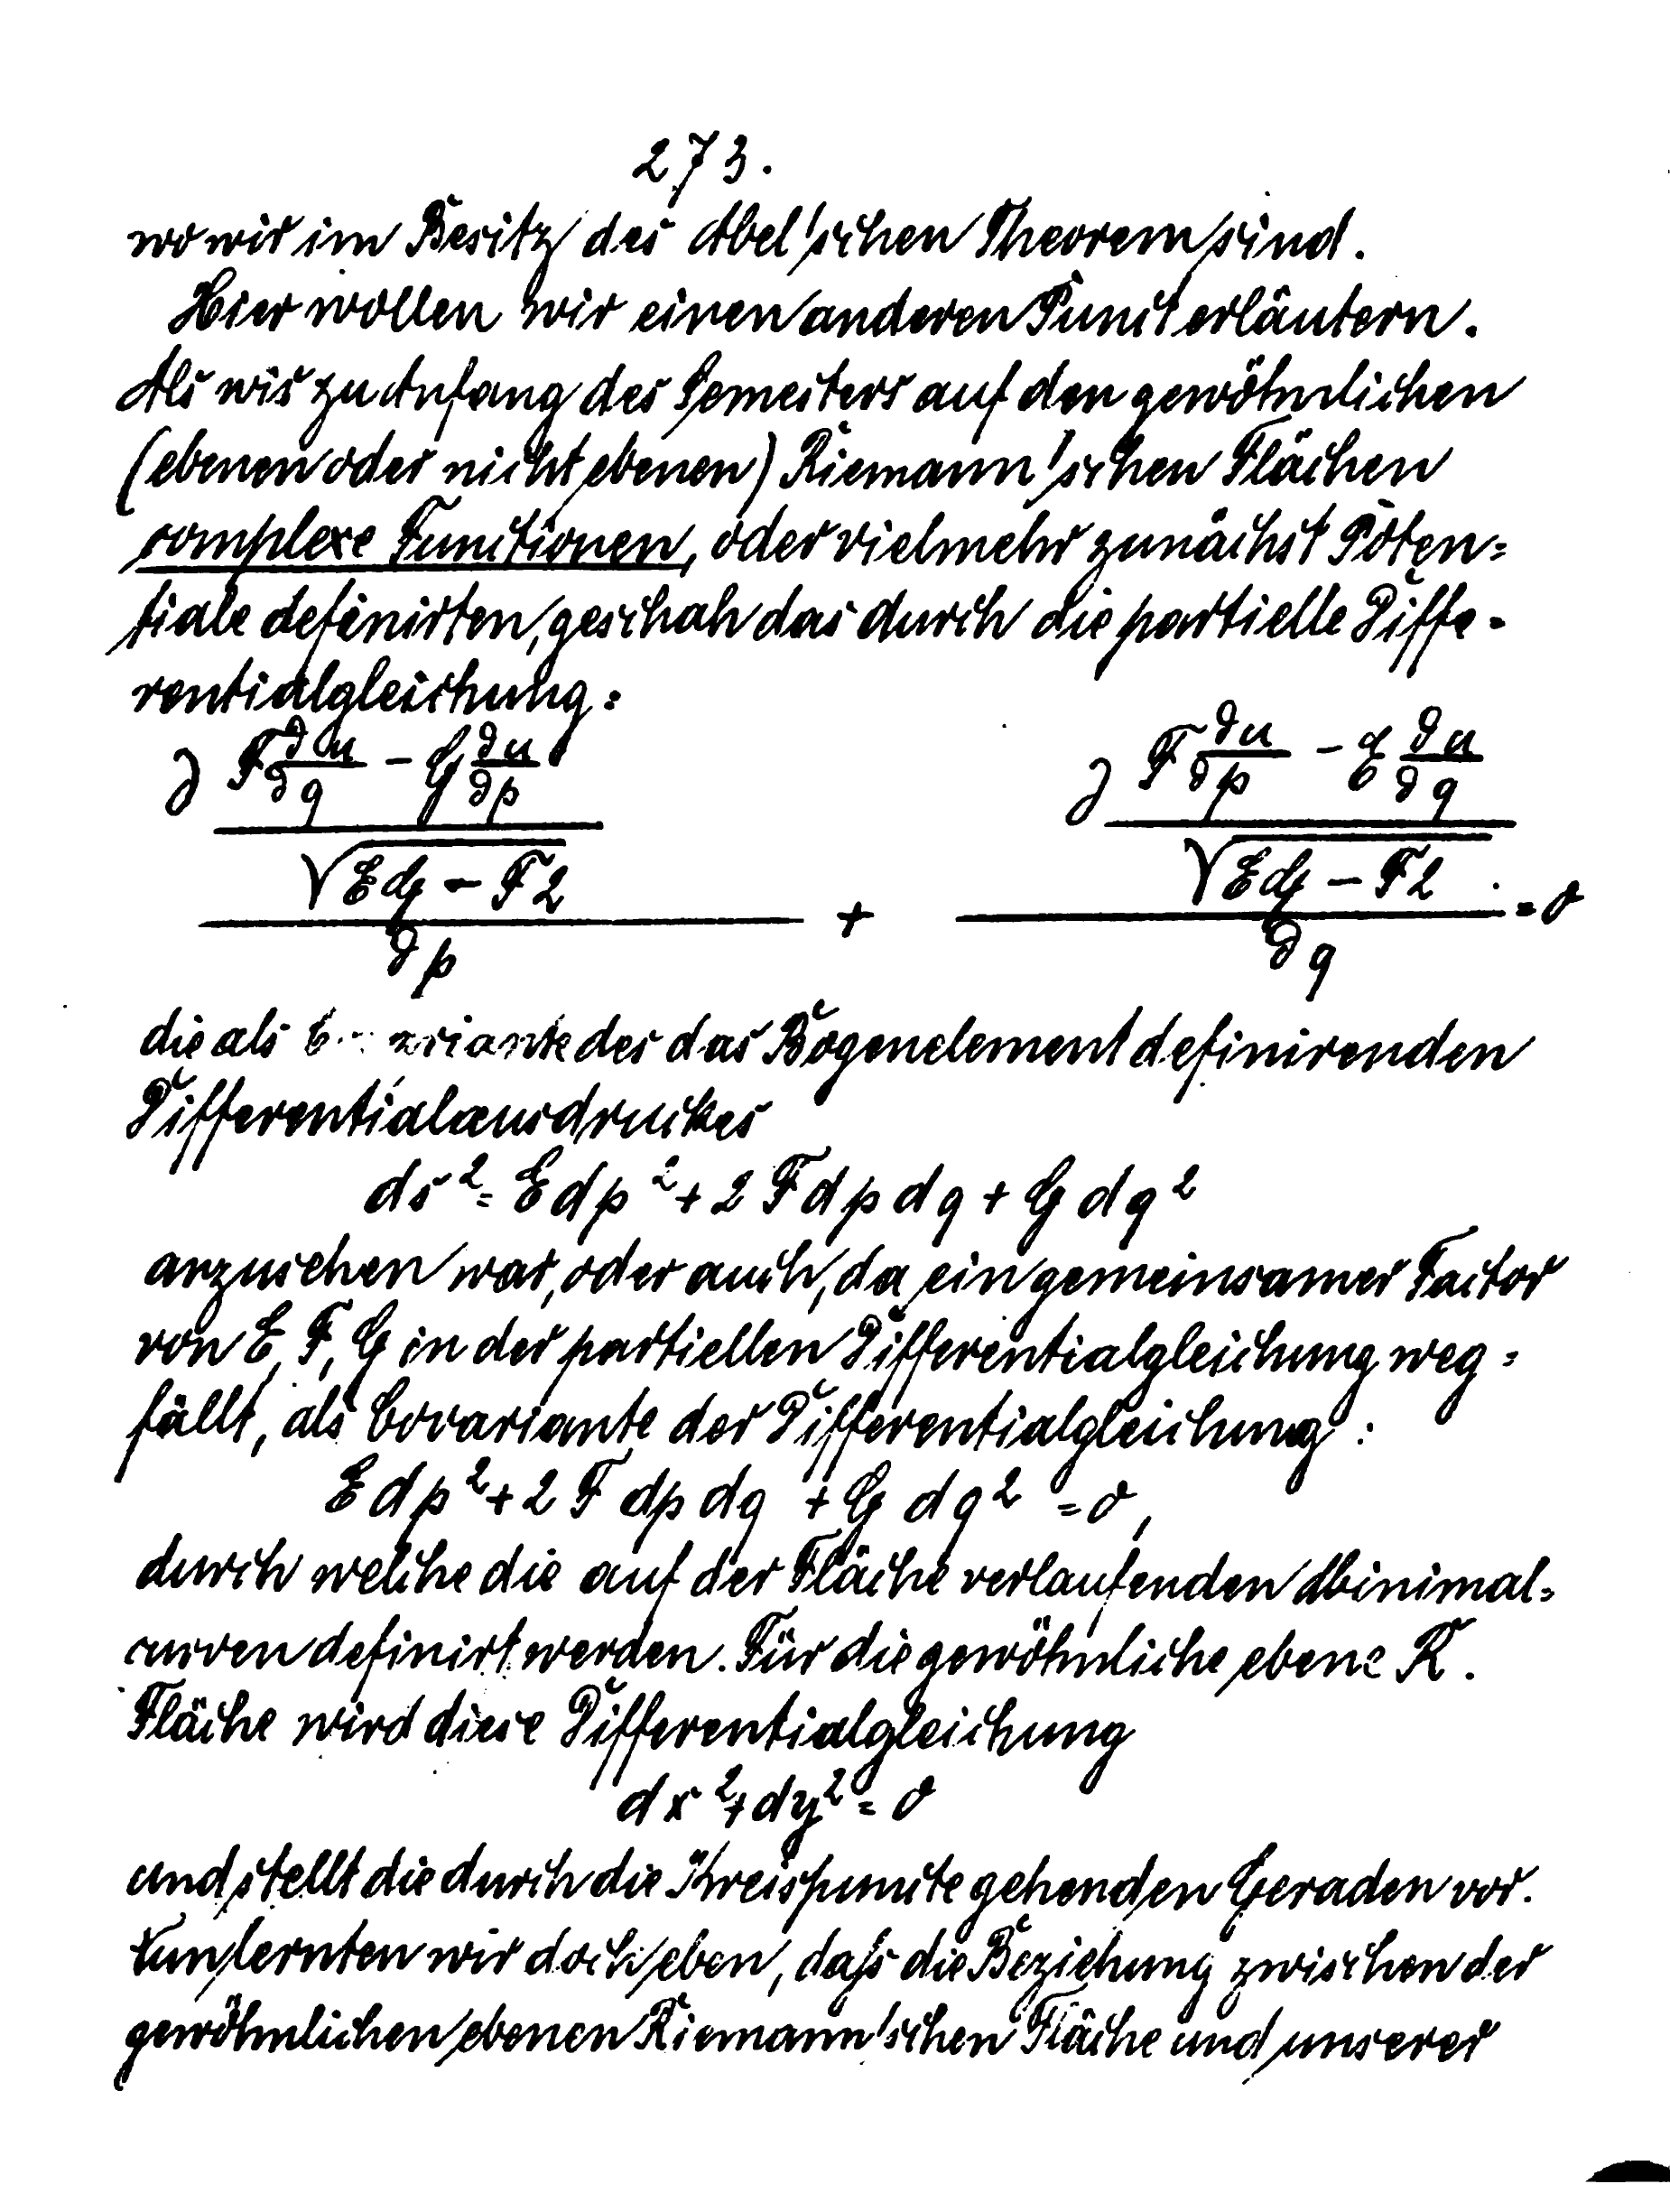 273.
wo wir im Besitz des Abel'schen Theorems sind.
Hier wollen wir einen anderen Punct erläutern.
Als wir zu Anfang des Semesters auf den gewöhnlichen
(ebenen oder nicht ebenen) Riemann'schen Flächen
complexe Functionen, oder vielmehr zunächst Poten=
tiale definirten, geschah das durch die partielle Diffe-
rentialgleichung:
∂ (F ∂u/∂q - G ∂u/∂p) / √(EG - F2) / ∂p + ∂ (F ∂u/∂p - E ∂u/∂q) / √(EG - F2) / ∂q = 0
die als Covariante des das Bogenelement definirenden
Differentialausdruckes
ds² = E dp² + 2 F dp dq + G dq²
anzusehen war, oder auch, da ein gemeinsamer Factor
von E, F, G in der partiellen Differentialgleichung weg=
fällt, als Covariante der Differentialgleichung:
E dp² + 2 F dp dq + G dq² = 0,
durch welche die auf der Fläche verlaufenden Minimal=
curven definirt werden. Für die gewöhnliche ebene R.
Fläche wird diese Differentialgleichung
dx² + dy² = 0
und stellt die durch die Kreispuncte gehenden Geraden vor.
Nun lernten wir doch eben, dass die Beziehung zwischen der
gewöhnlichen ebenen Riemann'schen Fläche und unserer